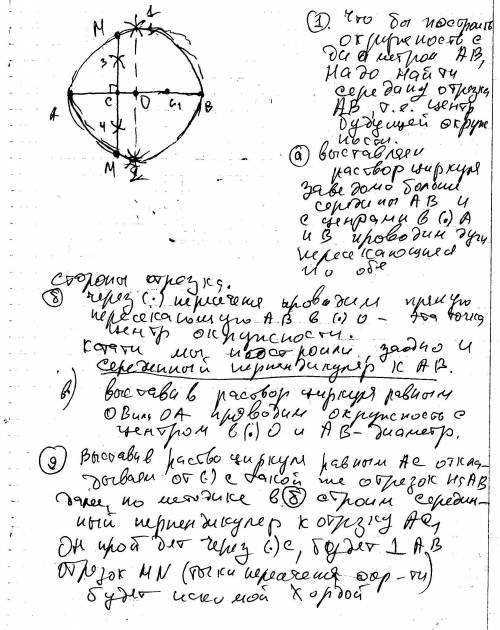 M 1
3
A C O C1 B
4
M 2
1. Что бы построить
окружность с
диаметром АВ,
надо найти
середину отрезка
АВ, т.е. центр
будущей окруж
ности.
а) выставляем
раствор циркуля
заведомо больше
середины АВ и
с центрами в (.) А
и В проводим дуги
пересекающиеся
по обе
стороны отрезка.
б) через (.) пересечения проводим прямую
пересекающую АВ в (.) О - эта точка
центр окружности.
кстати мы построили, заодно и
серединный перпендикуляр к АВ.
в) выставив раствор циркуля равным
ОВ или ОА проводим окружность с
центром в (.) О и АВ-диаметр.
Выставив раство циркуля равным АС откла
дываем от (.) С такой же отрезок на АВ
далее, по методике в б строим середин-
ный перпендикуляр к отрезку АС1
Он пройдет через (.) С, будет ⊥ АВ
отрезок MN (точки пересечения окр-ти)
будет искомой хордой